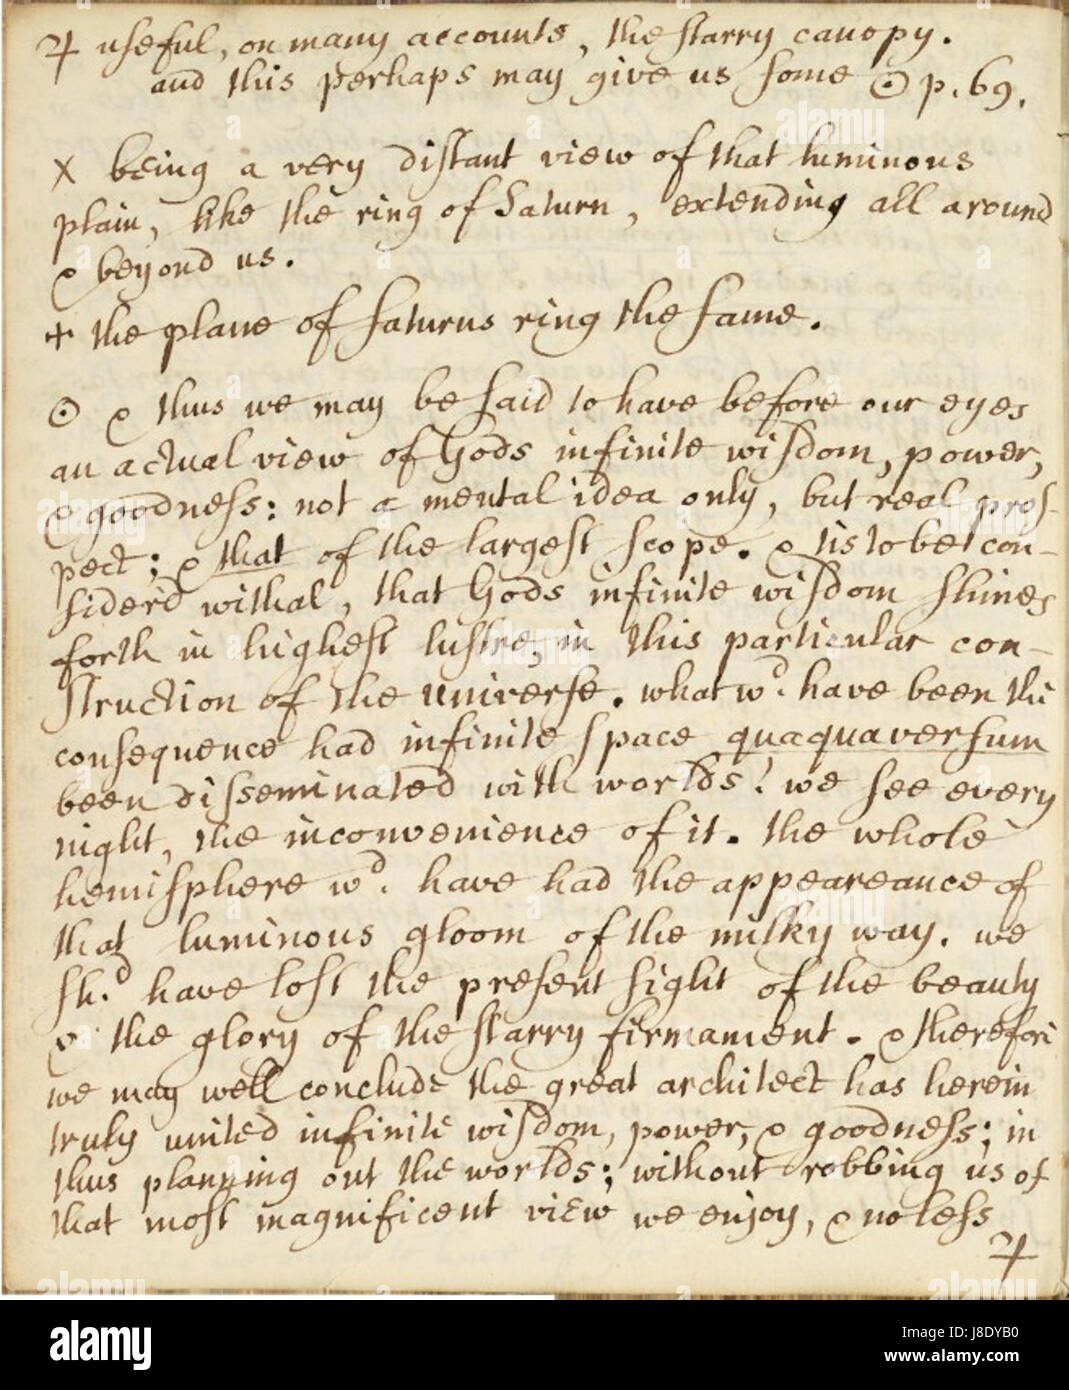 ♃ useful, on many accounts, the starry canopy.
and this perhaps may give us some ☉ p. 69.
X being a very distant view of that luminous
plain, like the ring of Saturn, extending all around
& beyond us.
+ the plane of saturns ring the same.
☉ & thus we may be said to have before our eyes
an actual view of Gods infinite wisdom, power,
& goodness: not a mental idea only, but real pros-
pect; & that of the largest scope. & tis to be con-
siderd withal, that Gods infinite wisdom shines
forth in highest lustre, in this particular con-
struction of the universe. what wd. have been the
consequence had infinite space quaquaversum
been disseminated with worlds? we see every
night, the inconvenience of it. the whole
hemisphere wd. have had the appeareance of
that luminous gloom of the milky way. we
shd. have lost the present sight of the beauty
& the glory of the starry firmament. & therefore
we may well conclude the great architect has herein
truly united infinite wisdom, power, & goodness; in
thus planning out the worlds; without robbing us of
that most magnificent view we enjoy, & no less
♃
alamy
Image ID: J8DYB0
www.alamy.com